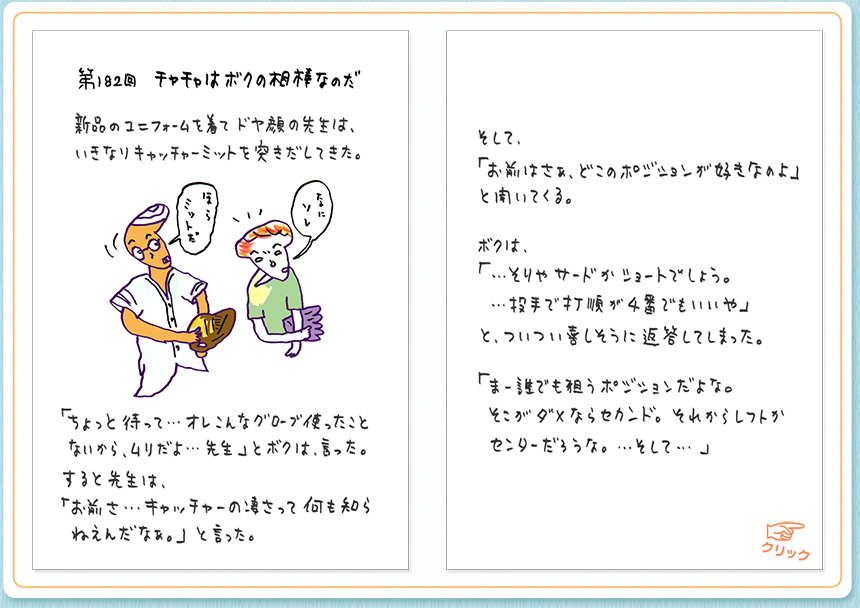 第182回 チャチャはボクの相棒なのだ
新品のユニフォームを着てドヤ顔の先生は、
いきなりキャッチャーミットを突きだしてきた。
ほら
ミットだ
なに
ソレ
「ちょっと待って…オレこんなグローブ使ったこと
ないから、ムリだよ…先生」とボクは、言った。
すると先生は、
「お前さ…キャッチャーの凄さって何も知ら
ねえんだなぁ。」と言った。
そして、
「お前はさぁ、どこのポジションが好きなのよ」
と聞いてくる。
ボクは、
「…そりゃサードかショートでしょう。
…投手で打順が4番でもいいや」
と、ついつい喜しそうに返答してしまった。
「まー誰でも狙うポジションだよな。
そこがダメならセカンド。それからレフトか
センターだろうな。…そして…」
クリック